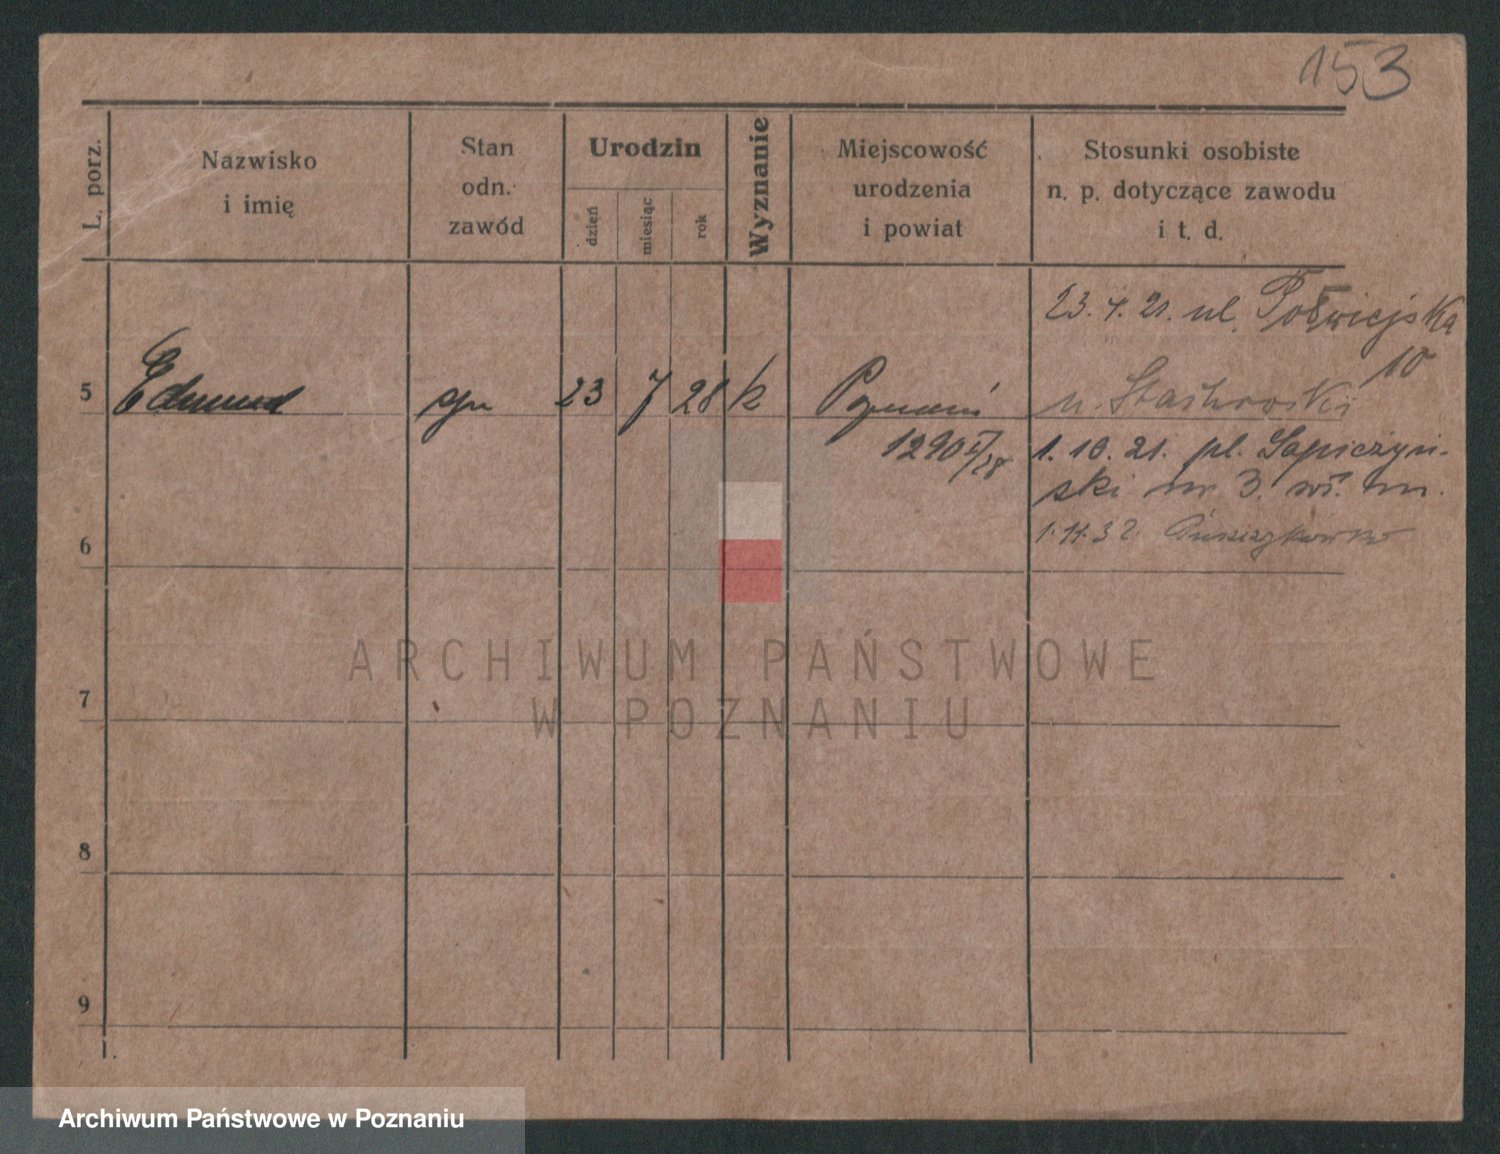 153
L. porz.
Nazwisko
i imię
Stan
odn.
zawód
Urodzin
dzień
miesiąc
rok
Wyznanie
Miejscowość
urodzenia
i powiat
Stosunki osobiste
n. p. dotyczące zawodu
i t. d.
23. 4. 21. ul. Półwiejska
10
5 Edmund syn 23 7 28 k Poznań u.
1290
1. 10. 21. pl. Sapieżyń-
ski nr 3.
6
1. 11. 32.
ARCHIWUM PAŃSTWOWE
W POZNANIU
7
8
9
Archiwum Państwowe w Poznaniu